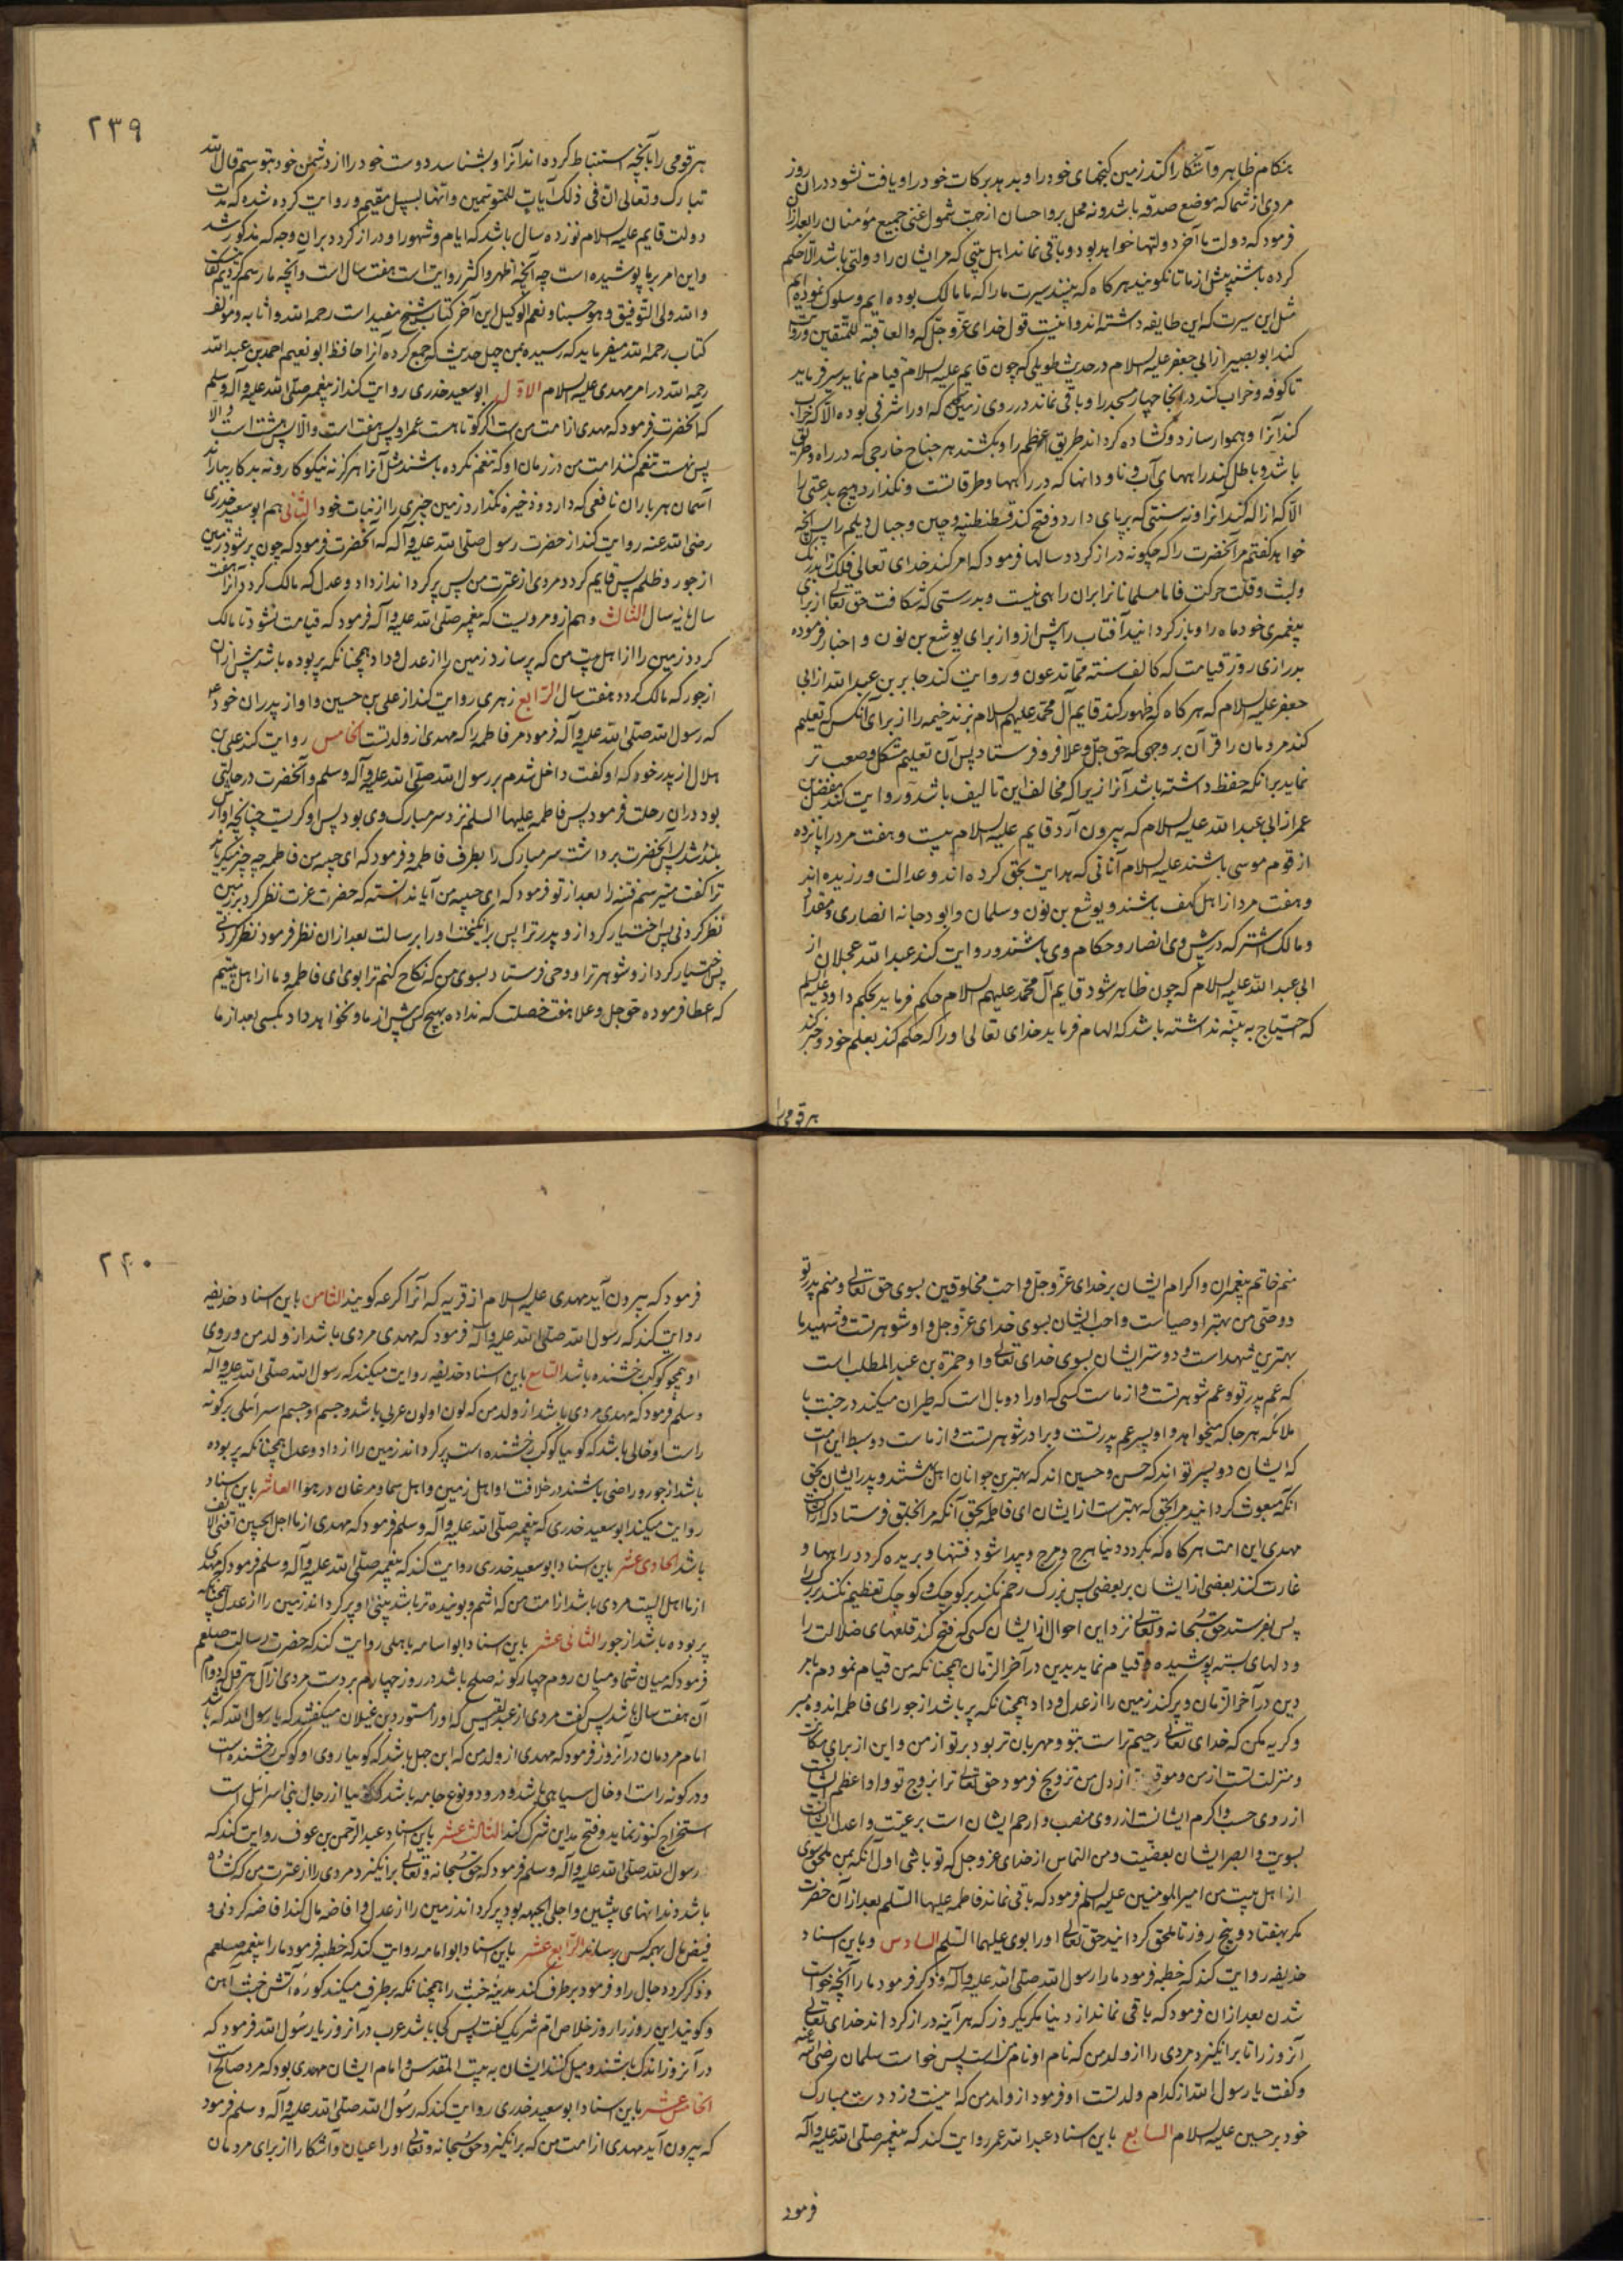 هنکام ظاهر و آشکارا کند زمین کنجهای خود را و بدهد برکات خود را و یافت نشود دران روز
مردی از شما که موضع صدقه باشد و نه محل بر و احسان از جهت شمول غنی جمیع مؤمنان را بعد ازان
فرمود که دولت ما آخر دولتها خواهد بود و باقی نماند اهل بیتی که مر ایشان را دولتی باشد الا حکم
کرده باشند پیش از ما تا نکویند هرکاه که بینند سیرت ما را که ما مالک بوده ایم و سلوک نموده ایم
مثل این سیرت که این طایفه داشته اند و اینست قول خدای عز و جل که والعاقبة للمتقین و روایت
کند ابو بصیر از ابی جعفر علیه السلام در حدیث طویلی که چون قایم علیه السلام قیام نماید سیر فرماید
تا کوفه و خراب کند در آنجا چهار مسجد را و باقی نماند در روی زمین که او را شرفی بوده الا که خراب
کند آنرا و هموار سازد و کشاده کرداند طریق اعظم را و بشکند هر جناح خارجی که در راه و طریق
باشد و باطل کند راههای آب و ناودانها که در راهها و طرقاتست و نکذارد هیچ بدعتی را
الا که ازاله کند آنرا و نه سنتی که برپای دارد و فتح کند قسطنطنیه و چین و جبال دیلم را پس آنچه
خواهد کفتم مر آنحضرت را که چکونه دراز کردد سالها فرمود که امر کند خدای تعالی فلک را بدرنک
ولبث و قلت حرکت فاما مسلمانانرا بران راهی نیست و بدرستی که شکافت حق تعالی از برای
پیغمبری خود ماه را و باز کردانید آفتاب را پیش ازو از برای یوشع بن نون و اخبار فرموده
بدرازی روز قیامت که کالف سنة مما تعدون و روایت کند جابر بن عبدالله از ابی
جعفر علیه السلام که هرکاه که ظهور کند قایم آل محمد علیهم السلام بزند خیمه را از برای آنکس که تعلیم
کند مردمان را قرآن بر وجهی که حق جل و علا فرو فرستاد پس آن تعلیم مشکل و صعب تر
نماید بر آنکه حفظ داشته باشد آنرا زیرا که مخالف این تالیف باشد و روایت کند مفضل بن
عمر از ابی عبدالله علیه السلام که بیرون آرد قایم علیه السلام بیست و هفت مرد را پانزده
از قوم موسی باشند علیه السلام آنانی که هدایت بحق کرده اند و عدالت ورزیده اند
و هفت مرد از اهل کهف باشند و یوشع بن نون و سلمان و ابو دجانه انصاری و مقداد
و مالک اشتر که در پیش وی انصار و حکام وی باشند و روایت کند عبدالله عجلان از
ابی عبدالله علیه السلام که چون ظاهر شود قایم آل محمد علیهم السلام حکم فرماید بحکم داود علیه السلام
که احتیاج به بینه نداشته باشد که الهام فرماید خدای تعالی او را که حکم کند بعلم خود و خبر کند
هر قومی را
۲۳۹
هر قومی را بآنچه استنباط کرده اند آنرا و بشناسد دوست خود را از دشمن خود بتوسم قال الله
تبارک و تعالی ان فی ذلک لآیات للمتوسمین و انها لبسبیل مقیم و روایت کرده شده که مدت
دولت قایم علیه السلام نوزده سال باشد که ایام و شهور او دراز کردد بران وجه که مذکور شد
و این امر بر ما پوشیده است چه آنچه اظهر و اکثر روایت است هفت سال است و آنچه ما رسم کردیم کفایت
والله ولی التوفیق و هو حسبنا و نعم الوکیل این آخر کتاب شیخ مفید است رحمه الله و اثابه و مؤلف
کتاب رحمه الله میفرماید که رسیده بمن چهل حدیث که جمع کرده آنرا حافظ ابو نعیم احمد بن عبدالله
رحمه الله در امر مهدی علیه السلام الاول ابو سعید خدری روایت کند از پیغمبر صلی الله علیه وآله وسلم
که آنحضرت فرمود که مهدی از امت من است اکر کوتاهست عمر او پس هفت است و الا پس هشت است و الا
پس نهست تنعم کنند امت من در زمان او که تنعم نکرده باشند مثل آنرا هرکز نه نیکوکار و نه بدکار بباراند
آسمان هر باران نافعی که دارد و ذخیره نکذارد زمین چیزی را از نبات خود الثانی هم ابو سعید خدری
رضی الله عنه روایت کند از حضرت رسول صلی الله علیه وآله که آنحضرت فرمود که چون پر شود زمین
از جور و ظلم پس قایم کردد مردی از عترت من پس پر کرداند از داد و عدل که مالک کردد آنرا هفت
سال یا نه سال الثالث و هم ازو مرویست که پیغمبر صلی الله علیه وآله فرمود که قیامت نشود تا مالک
کردد زمین را از اهل بیت من که پر سازد زمین را از عدل و داد همچنانکه پر بوده باشد پیش ازان
از جور که مالک کردد هفت سال الرابع زهری روایت کند از علی بن حسین و او از پدران خود
که رسول الله صلی الله علیه وآله فرمود مر فاطمه را که مهدی از ولد تست الخامس روایت کند علی بن
هلال از پدر خود که او کفت داخل شدم بر رسول الله صلی الله علیه وآله وسلم و آنحضرت در حالتی
بود دران رحلت فرمود پس فاطمه علیها السلم نزد سر مبارک وی بود پس او کریست چنانچه آواز
بلند شد پس آنحضرت برداشت سر مبارک را بطرف فاطمه و فرمود که ای حبیبه من فاطمه چه چیز میکریاند
ترا کفت میترسم فتنه را بعد از تو فرمود که ای حبیبه من آیا ندانسته که حضرت عزت نظر کرد بر زمین
نظر کردنی پس اختیار کرد ازو پدر ترا پس برانکیخت او را برسالت بعد ازان نظر فرمود نظر کردنی
پس اختیار کرد ازو شوهر ترا و وحی فرستاد بسوی من که نکاح کنم ترا بوی ای فاطمه و ما از اهل بیتیم
که عطا فرموده حق جل و علا هفت خصلت که نداده بهیچ کس پیش از ما و نخواهد داد بکسی بعد از ما
منم خاتم پیغمبران و اکرام ایشان بر خدای عز و جل و احب مخلوقین بسوی حق تعالی و منم پدر تو
و وصی من بهتر اوصیاست و احب ایشان بسوی خدای عز و جل و او شوهر تست و شهید ما
بهترین شهداست و دوستر ایشان بسوی خدای تعالی و او حمزة بن عبدالمطلب است
که عم پدر تو و عم شوهر تست و از ماست کسی که او را دو بال است که طیران میکند در جنت با
ملائکه هر جا که میخواهد و او پسر عم پدر تست و برادر شوهر تست و از ماست دو سبط این امت
که ایشان دو پسر تو اند که حسن و حسین اند که بهترین جوانان اهل بهشتند و پدر ایشان بحق
آنکه مبعوث کردانید مرا بحق که بهترست از ایشان ای فاطمه بحق آنکه مرا بخلق فرستاد که از ماست
مهدی این امت هرکاه که بکردد دنیا هرج و مرج و پیدا شود فتنها و بریده کردد راهها و
غارت کنند بعضی از ایشان بر بعضی پس بزرک رحم نکند بر کوچک و کوچک تعظیم نکند بزرک را
پس بفرستد حق سبحانه و تعالی نزد این احوال از ایشان کسی که فتح کند قلعهای ضلالت را
و دلهای بسته پوشیده را قیام نماید بدین در آخر الزمان همچنانکه من قیام نمودم بامر
دین در آخر الزمان و پر کند زمین را از عدل و داد همچنانکه پر باشد از جور ای فاطمه اندوه مبر
و کریه مکن که خدای تعالی رحیم تر است بتو و مهربان تر بود بر تو از من و این از برای مکانت
و منزلت تست از من و موقع از دل من تزویج فرمود حق تعالی ترا بزوج تو و او اعظم ایشانست
از روی حسب و اکرم ایشانست از روی منصب و ارحم ایشان است برعیت و اعدل ایشانست
بسویت و ابصر ایشان بقضیت و من التماس از خدای عز و جل که تو باشی اول آنکه بمن ملحق شوی
از اهل بیت من امیر المؤمنین علیه السلم فرمود که باقی نماند فاطمه علیها السلم بعد از آن حضرت
مکر هفتاد و پنج روز تا ملحق کردانید حق تعالی او را بوی علیهما السلم السادس و باین اسناد
حذیفه روایت کند که خطبه فرمود ما را رسول الله صلی الله علیه وآله و ذکر فرمود ما را آنچه خواست
شدن بعد ازان فرمود که باقی نماند از دنیا مکر یکروز که هر آینه دراز کرداند خدای تعالی
آنروز را تا برانکیزد مردی را از ولد من که نام او نام منست پس خواست سلمان رضی الله عنه
و کفت یا رسول الله از کدام ولد تست او فرمود از ولد من که اینست و زد دست مبارک
خود بر حسین علیه السلام السابع باین اسناد عبدالله عمر روایت کند که پیغمبر صلی الله علیه وآله
فرمود
۲۴۰
فرمود که بیرون آید مهدی علیه السلام از قریه که آنرا کرعه کویند الثامن باین اسناد حذیفه
روایت کند که رسول الله صلی الله علیه وآله فرمود که مهدی مردی باشد از ولد من و روی
او همچو کوکب رخشنده باشد التاسع باین اسناد حذیفه روایت میکند که رسول الله صلی الله علیه وآله
وسلم فرمود که مهدی مردی باشد از ولد من که لون او لون عربی باشد و جسم او جسم اسرائیلی بر کونه
راست او خالی باشد که کوییا کوکب رخشنده است پر کرداند زمین را از داد و عدل همچنانکه پر بوده
باشد از جور و راضی باشند در خلافت او اهل زمین و اهل سما و مرغان در هوا العاشر باین اسناد
روایت میکند ابو سعید خدری که پیغمبر صلی الله علیه وآله وسلم فرمود که مهدی از ما اجل الجبین اقنی الانف
باشد الحادی عشر باین اسناد ابو سعید خدری روایت کند که پیغمبر صلی الله علیه وآله وسلم فرمود که مهدی
از ما اهل البیت مردی باشد از امت من که اشم و بوینده تر باشد بینی او پر کرداند زمین را از عدل همچنانکه
پر بوده باشد از جور الثانی عشر باین اسناد ابو امامه باهلی روایت کند که حضرت رسالت صلعم
فرمود که میان شما و میان روم چهار کونه صلح باشد در روز چهارم بر دست مردی از آل هرقل که دوام
آن هفت سال باشد پس کفت مردی از عبد القیس که او را مستورد بن غیلان میکفتند که یا رسول الله که باشد
امام مردمان در آنروز فرمود که مهدی از ولد من که ابن چهل باشد که کوییا روی او کوکب رخشنده است
و در کونه راست او خال سیاهی باشد و در و دو نوع جامه باشد که کوییا از رجال بنی اسرائیل است
استخراج کنوز نماید و فتح مداین شرک کند الثالث عشر باین اسناد عبدالرحمن بن عوف روایت کند که
رسول الله صلی الله علیه وآله وسلم فرمود که حق سبحانه و تعالی برانکیزد مردی را از عترت من که کشاده
باشد دندانهای پیشین و اجلی الجبهه بود پر کرداند زمین را از عدل و افاضه مال کند افاضه کردنی و
فیض مال بهمه کس برساند الرابع عشر باین اسناد ابو امامه روایت کند که خطبه فرمود ما را پیغمبر صلعم
و ذکر کرد دجال را و فرمود برطرف کند مدینه خبث را همچنانکه برطرف میکند کوره آتش خبث آهن
و کویند این روز را روز خلاص ام شریک کفت پس کجا باشد عرب در آنروز یا رسول الله فرمود که
در آنروز اندک باشند و میل کنند ایشان به بیت المقدس و امام ایشان مهدی بود که مرد صالح است
الخامس عشر باین اسناد ابو سعید خدری روایت کند که رسول الله صلی الله علیه وآله وسلم فرمود
که بیرون آید مهدی از امت من که برانکیزد حق سبحانه و تعالی او را عیان و آشکارا از برای مردمان